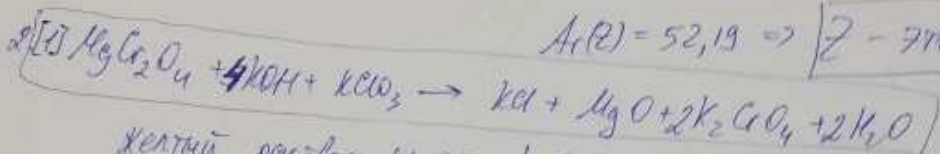 Ar(Z) = 52,19 => Z - эл
2) [1] MgCr₂O₄ + 4KOH + KClO₃ → KCl + MgO + 2K₂CrO₄ + 2H₂O
желтый